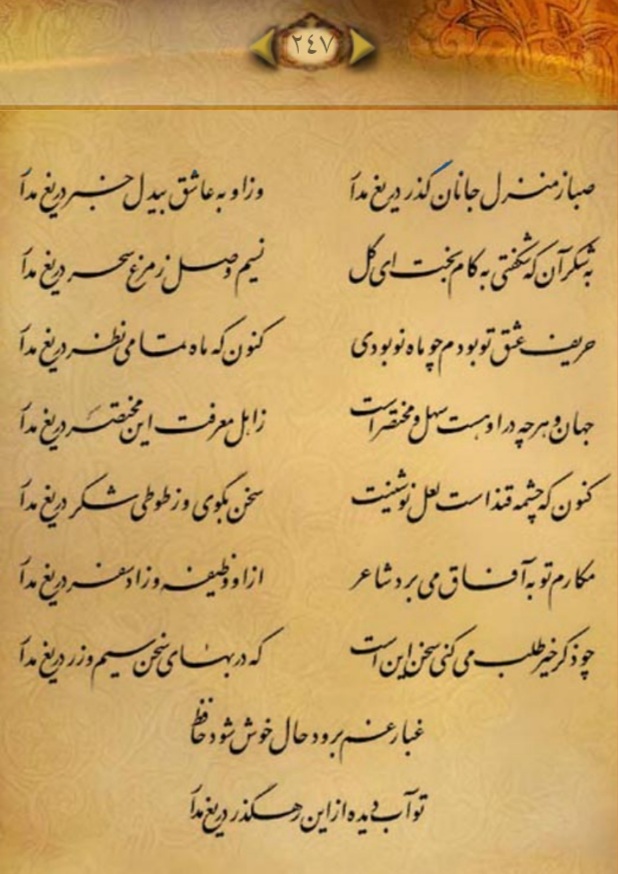 ۲۴۷
صبا ز منزل جانان گذر دریغ مدار وز او به عاشق بیدل خبر دریغ مدار
به شکر آن که شکفتی به کام بخت ای گل نسیم وصل ز مرغ سحر دریغ مدار
حریف عشق تو بودم چو ماه نو بودی کنون که ماه تمامی نظر دریغ مدار
جهان و هر چه در او هست سهل و مختصر است ز اهل معرفت این مختصر دریغ مدار
کنون که چشمه قند است لعل نوشینت سخن بگوی و ز طوطی شکر دریغ مدار
مکارم تو به آفاق می برد شاعر از او وظیفه و زاد سفر دریغ مدار
چو ذکر خیر طلب می کنی سخن این است که در بهای سخن سیم و زر دریغ مدار
غبار غم برود حال خوش شود حافظ
تو آب دیده از این رهگذر دریغ مدار